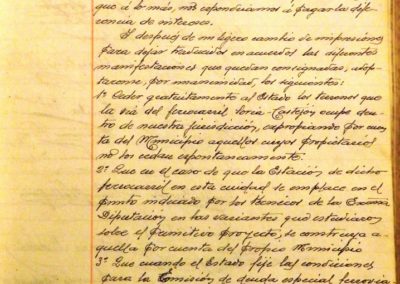 que á lo más, nos expondriamos á pagar la dife-
rencia de intereses.
Y después de un ligero cambio de impresiones
para dejar traducidas en acuerdos las diferentes
manifestaciones que quedan consignadas, adop-
taronse, por unanimidad, los siguientes:
1º Ceder gratuitamente al Estado los terrenos que
la vía del ferrocarril Soria-Castejón ocupe den-
tro de nuestra jurisdicción, expropiando por cuen-
ta del Municipio aquellos cuyos propietarios
no los cedan espontaneamente.
2º Que en el caso de que la Estación de dicho
ferrocarril en esta ciudad se emplace en el
punto indicado por los técnicos de la Excma
Diputación en las variantes que estudiaron
sobre el primitivo proyecto, se construya a-
quella por cuenta del propio Municipio
3º Que cuando el Estado fije las condiciones
para la Emisión de deuda especial ferrovia